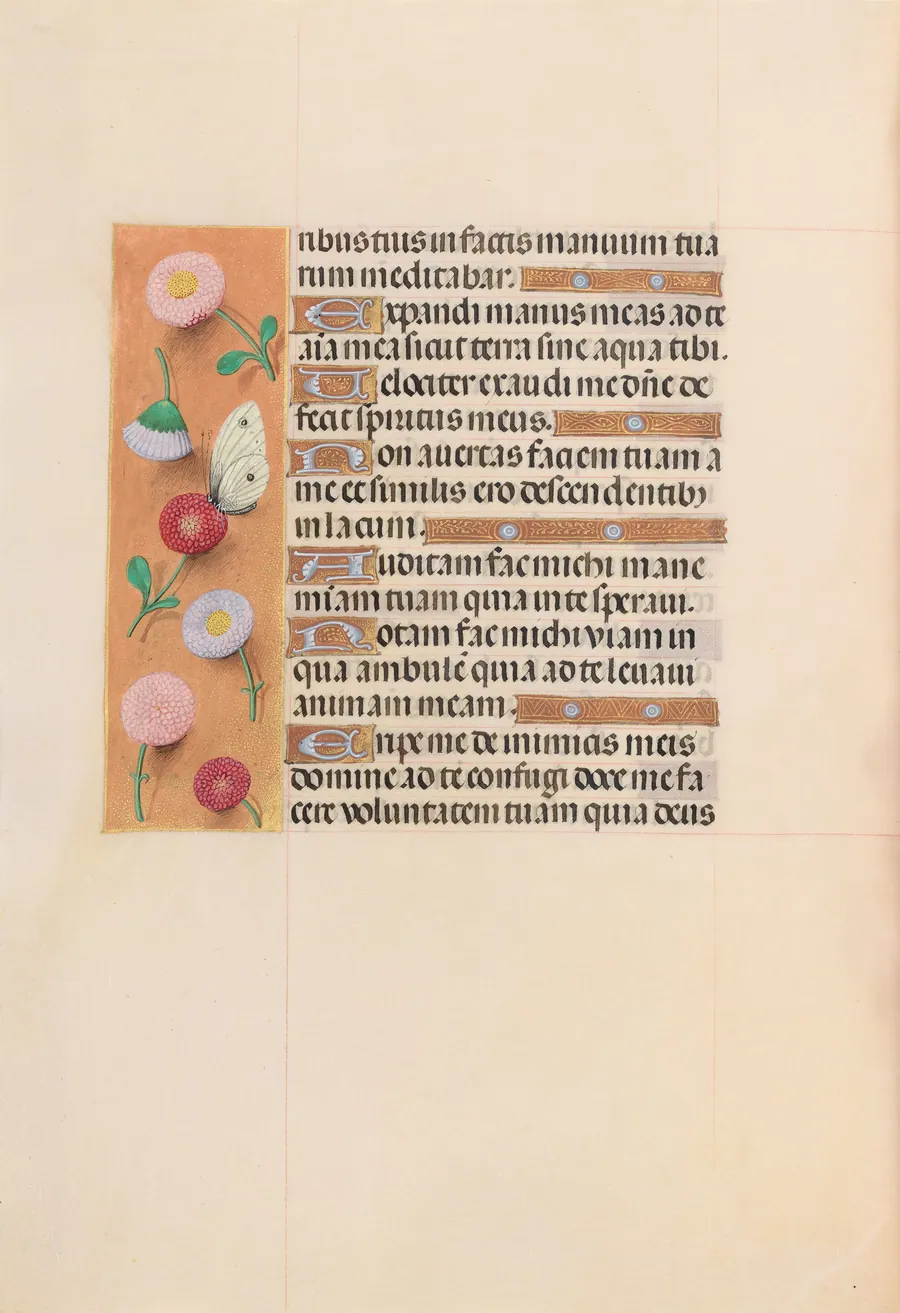 ribus tuis in factis manuum tua
rum meditabar.
Expandi manus meas ad te
aīa mea sicut terra sine aqua tibi.
Velociter exaudi me dn̄e de
fecit spiritus meus.
Non auertas faciem tuam a
me et similis ero descendentibꝫ
in lacum.
Auditam fac michi mane
miam tuam quia in te speraui.
Notam fac michi viam in
qua ambulē quia ad te leuaui
animam meam.
Eripe me de inimicis meis
domine ad te confugi doce me fa
cere voluntatem tuam quia deus